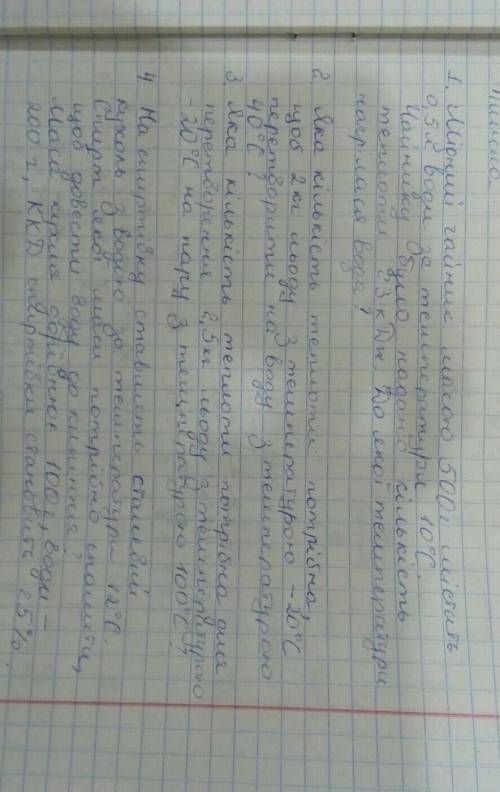 1. Мідний чайник масою 500г містить
0,5л води за температури 10°С.
Чайнику було надано кількість
теплоти 53 кДж. До якої температури
нагрілася вода?
2. Яка кількість теплоти потрібна,
щоб 2кг льоду з температурою -20°С
перетворити на воду з температурою
40°С?
3. Яка кількість теплоти потрібна для
перетворення 2,5кг льоду з температурою
-20°С на пару з температурою 100°С?
4. На спиртівку ставлять сталевий
кухоль з водою за температури 12°С.
Спирт якої маси потрібно спалити,
щоб довести воду до кипіння?
Маса кухля дорівнює 100г, води -
200г, ККД спиртівки становить 25%.